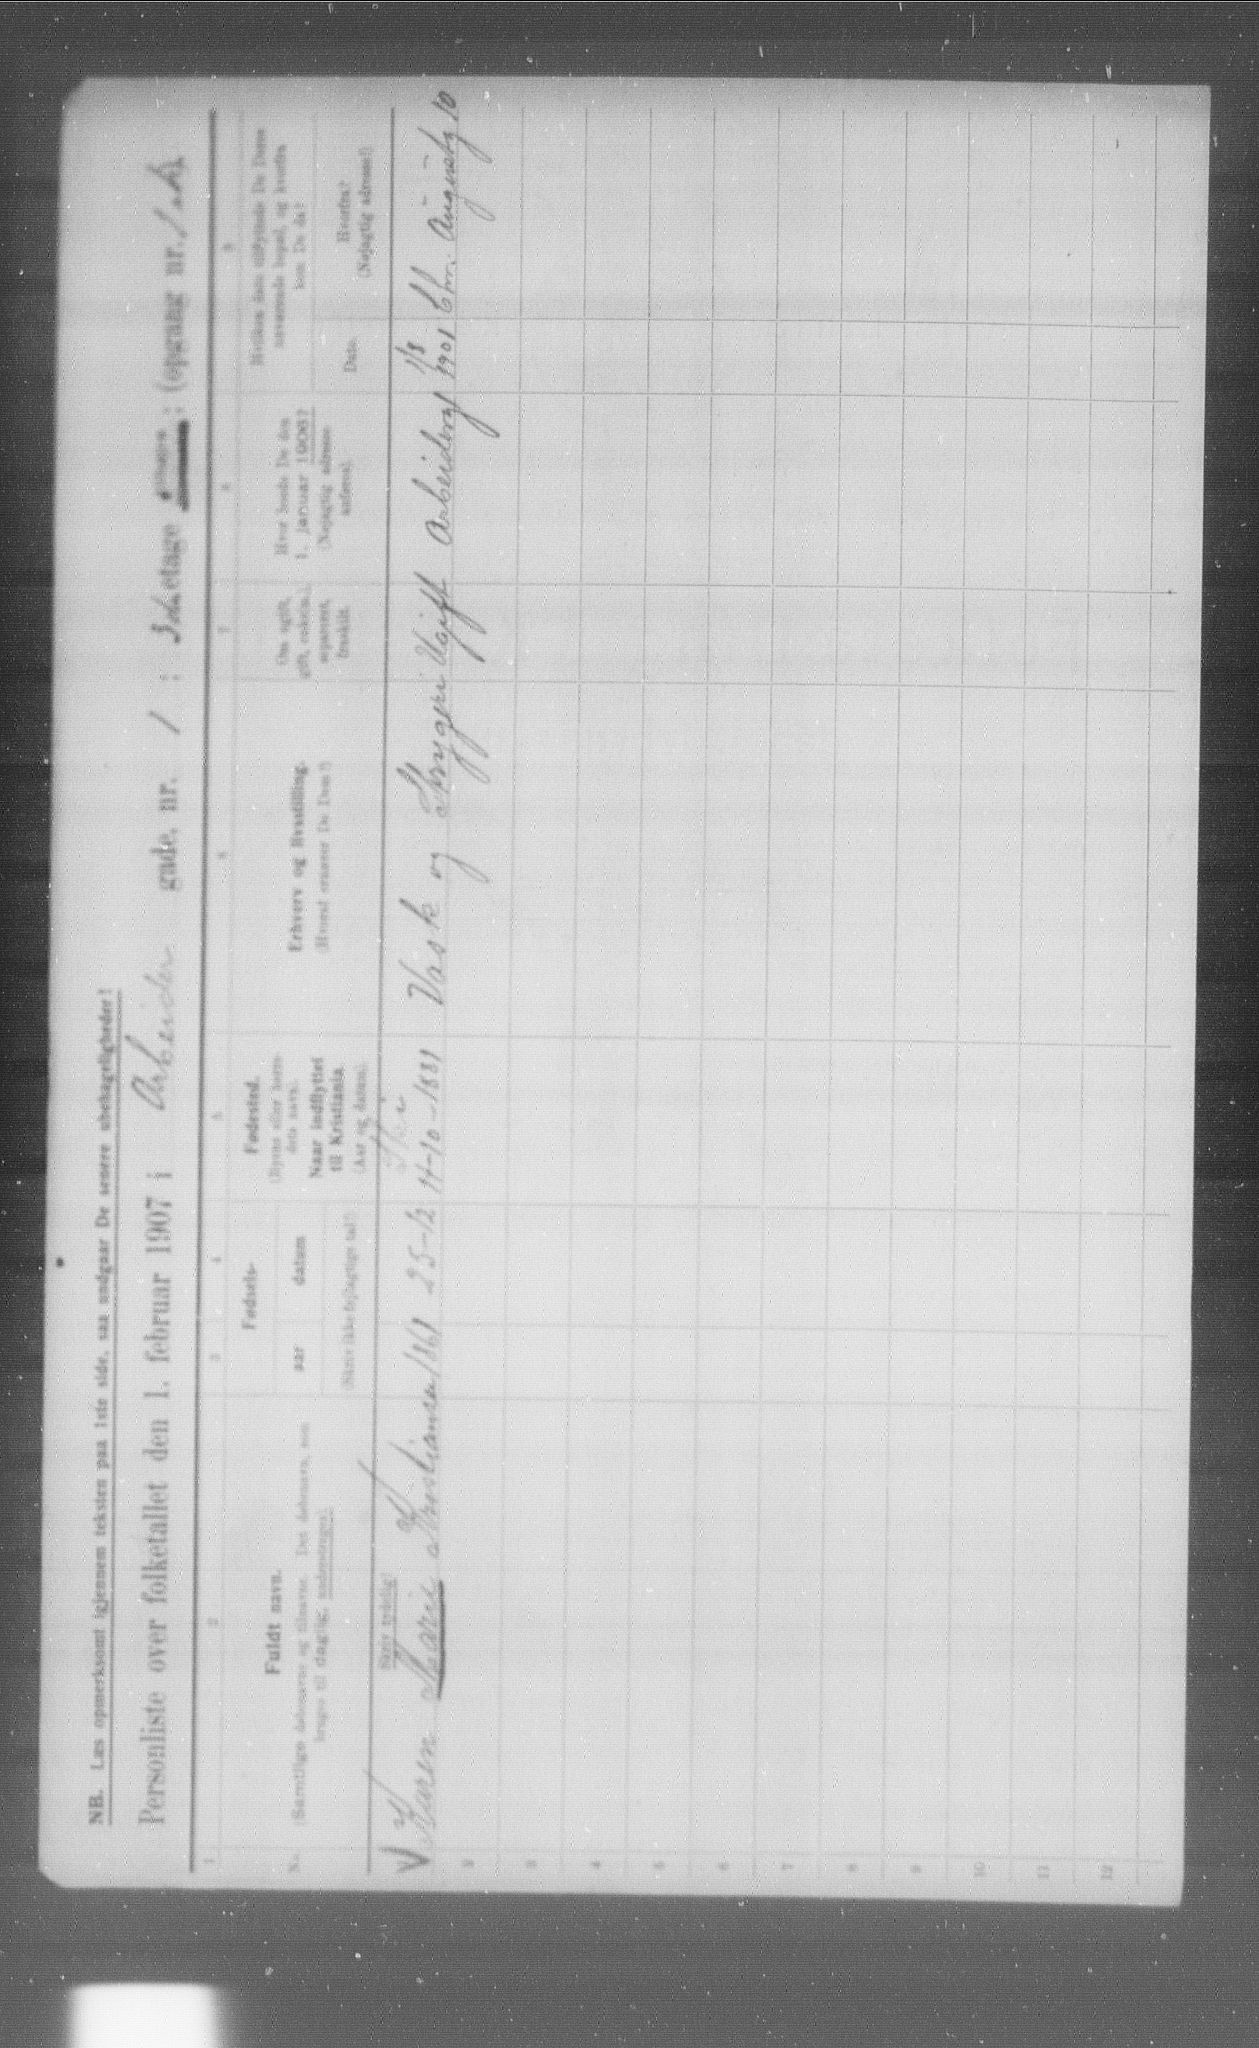 NB. Læs opmerksomt igjennem teksten paa 1ste side, saa undgaar De senere ubehageligheder!
Personliste over folketallet den 1. februar 1907 i Arbeider gade, nr. 1 : 3die etage ; (opgang nr.
1 2 3 4 5 6 7 8 9
No.
Fuldt navn.
(Samtlige døbenavne og tilnavne. Det døbenavn, som
bruges til dagtig, understreges).
Skriv tydelig!
Fødsels-
aar datum
(Skriv ikke fejlagtige tal!)
Fødested.
(Byens eller herre-
dets navn.
Naar indflyttet
til Kristiania
(Aar og datum).
Erhverv og livsstilling.
(Hvoraf ernærer De Dem?)
Om ugift,
gift, enkem.,
separeret,
fraskilt.
Hvor boede De den
1. januar 1906?
(Nøjagtig adresse
anføres).
Hvilken dato tilflyttede De Deres
nuværende bopæl, og hvorfra
kom De da?
Dato.
Hvorfra?
(Nøjagtig adresse!)
V Karen Marie Kristiansen 1861 25-12 11-10-1881 Vask og Strygeri Ugift Arbeiderg 1 1/8 1901 Chr. Augustg 10
2
3
4
5
6
7
8
9
10
11
12